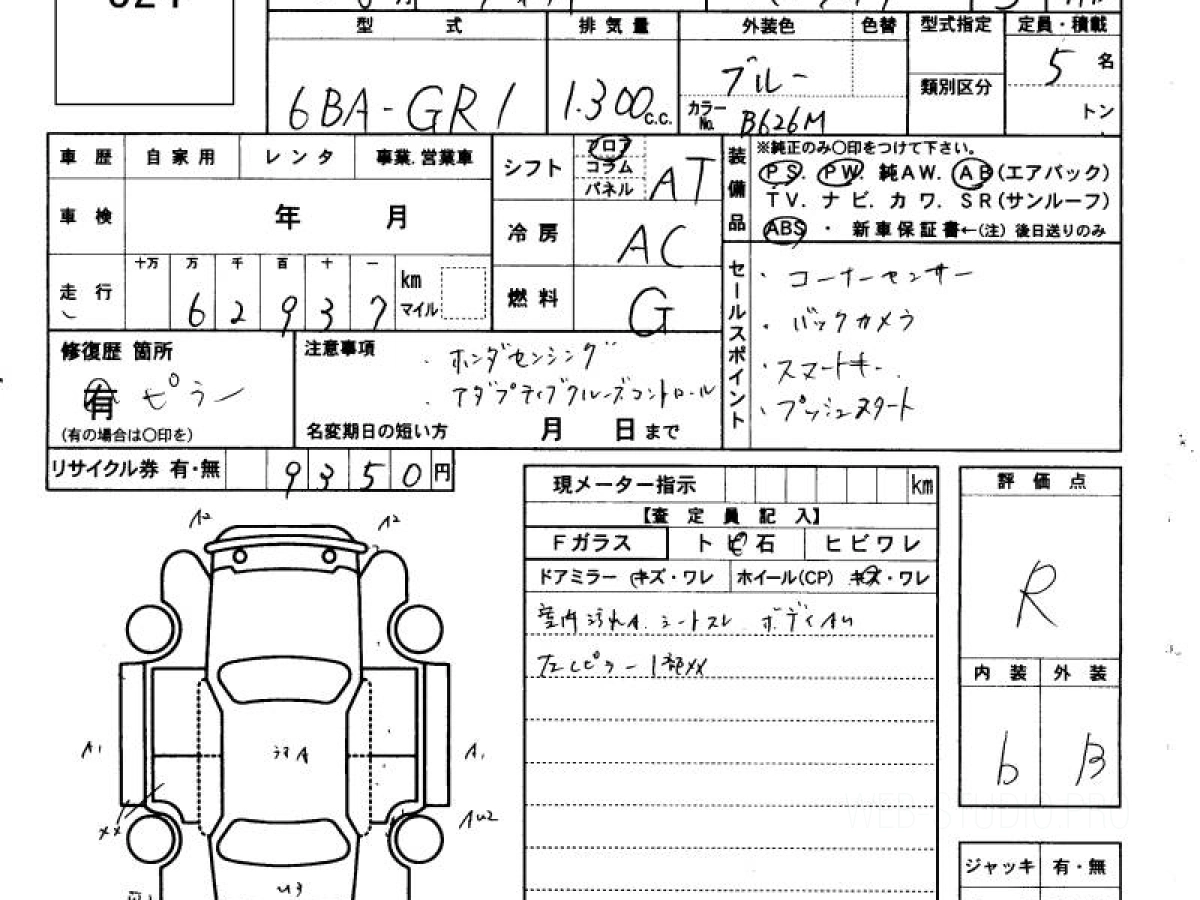 型 式 排 気 量 外装色 色替 型式指定 定員・積載
6BA-GR1 1.300c.c. ブルー 5 名
カラーNo. B626M 類別区分 トン
車 歴 自 家 用 レ ン タ 事業.営業車
シフト フロア コラム パネル AT
装備品 ※純正のみ○印をつけて下さい。
PS. PW. 純AW. AB(エアバック)
TV. ナビ. カワ. SR(サンルーフ)
ABS ・ 新車保証書←(注) 後日送りのみ
車 検 年 月
冷 房 AC
走 行 十万 万 千 百 十 一 km マイル
6 2 9 3 7
燃 料 G
セールスポイント
・コーナーセンサー
・バックカメラ
・スマートキー.
・プッシュスタート
修復歴 箇所
有 ピラー
(有の場合は○印を)
注意事項
・ホンダセンシング
・アダプティブクルーズコントロール
名変期日の短い方 月 日まで
リサイクル券 有・無 9350円
現メーター指示 km
【査 定 員 記 入】
Fガラス ト ビ 石 ヒビワレ
ドアミラー キズ・ワレ ホイール(CP) キズ・ワレ
室内汚れA. シートスレ ボディAU
左Cピラー1部XX
評 価 点
R
内 装 外 装
b B
ジャッキ 有・無
A2 A2
A1 A1
汚A
XX AU2
U3
WEB-STUDIO.PRO